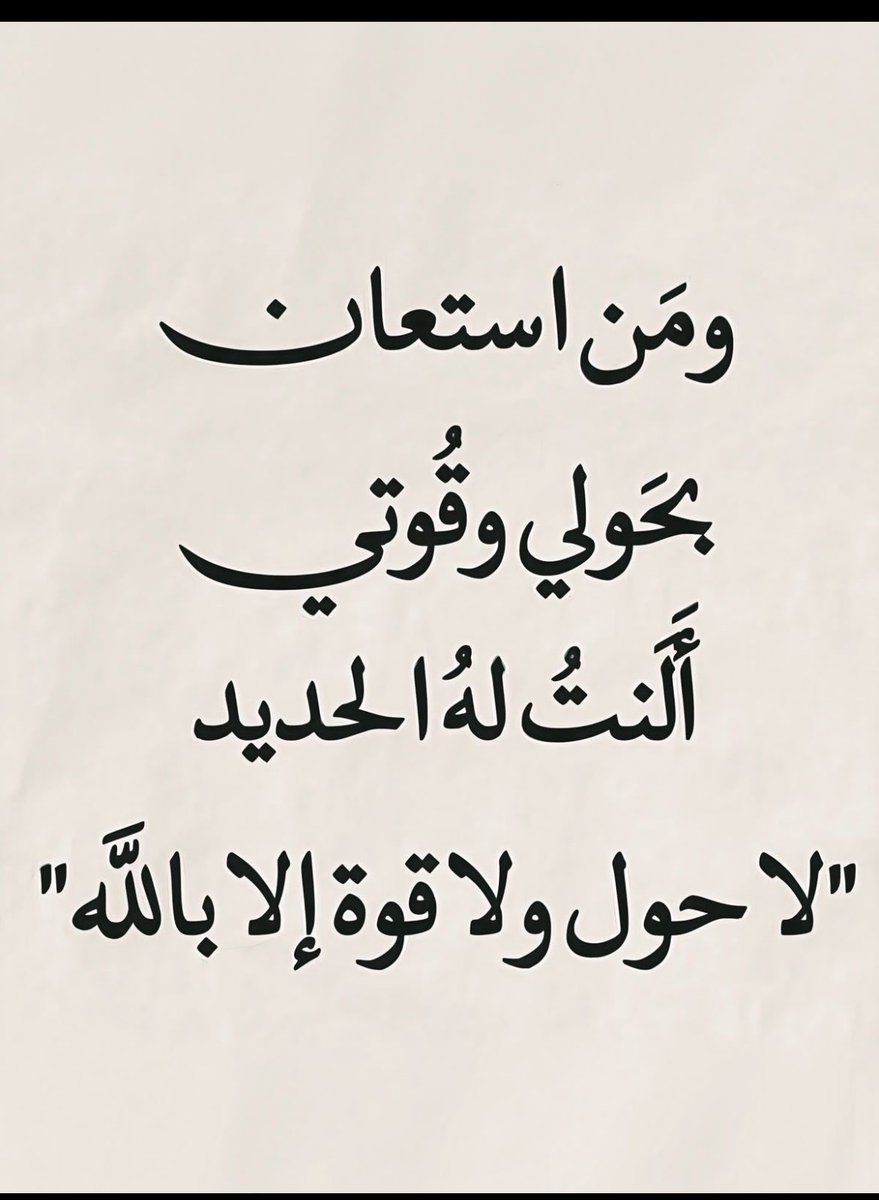 ومَن استعان
بحَولي وقُوتي
أَلَنتُ لهُ الحديد
"لا حول ولا قوة إلا باللَّه"